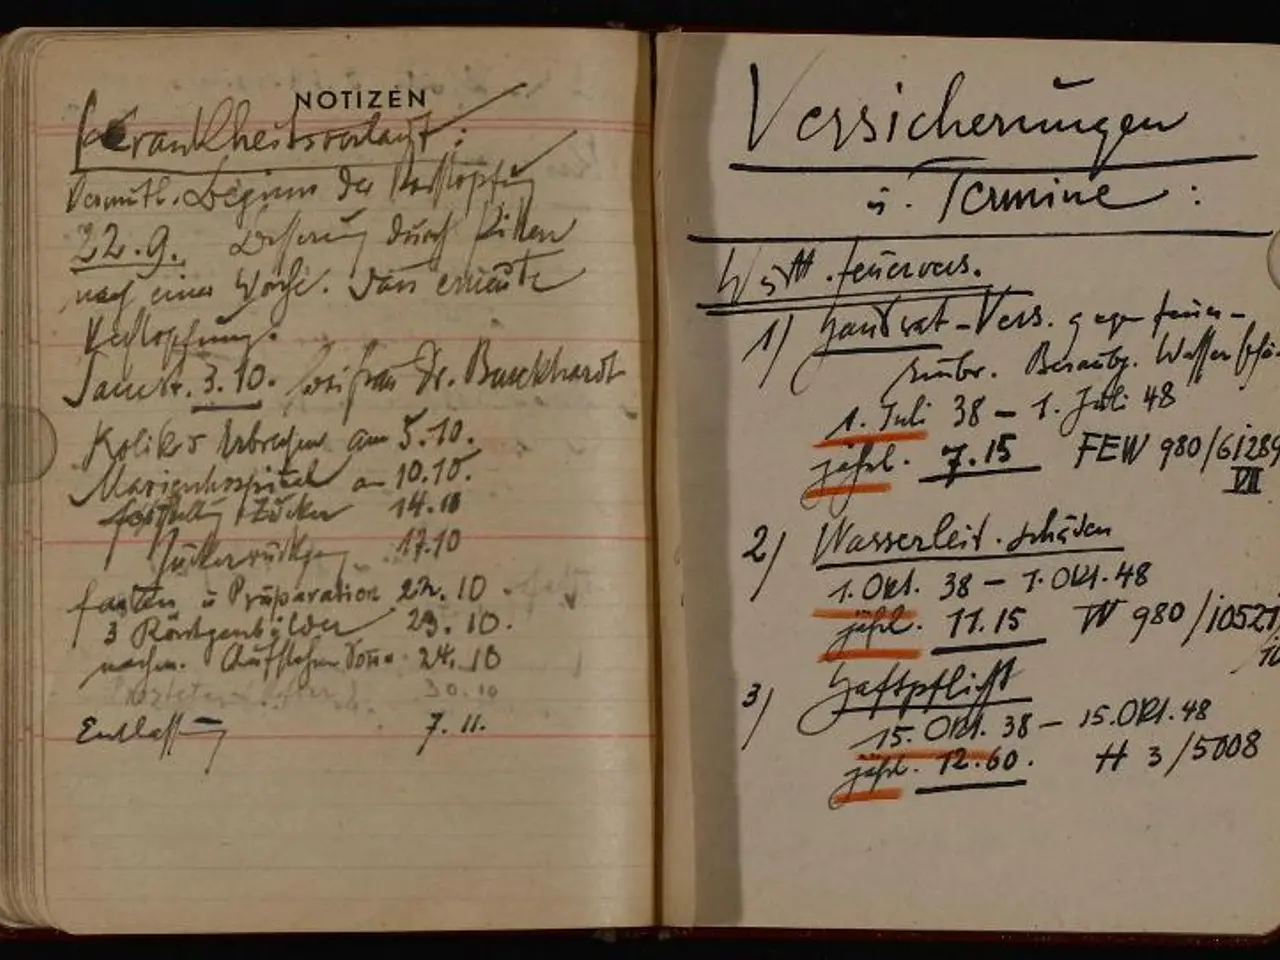 NOTIZEN
Krankheitsverlauf :
Vermutl. Beginn der Verstopfung
22.9. Besserung durch Pillen
nach einer Woche. Dann erneute
Verstopfung.
3.10. bei Frau Dr. Burckhardt
Koliken Erbrechen am 5.10.
Marienhospital am 10.10.
Zucker 14.10
Zuckerrückgang 17.10
fasten u Präparation 22. 10
3 Röntgenbilder 23. 10.
nachm. Aufstehen 24. 10
30.10
Entlassung 7. 11.
Versicherungen
u. Termine :
Württ. Feuervers.
1) Hausrat-Vers. gegen Feuer-
Einbr. Beraubg. Wasser
1. Juli 38 – 1. Juli 48
jährl. 7.15 FEW 980/61289
VII
2) Wasserleit. schäden
1. Okt. 38 – 1. Okt. 48
jährl. 11.15 W 980/10521
3) Haftpflicht
15. Okt. 38 – 15. Okt. 48
jährl. 12.60. H 3/5008